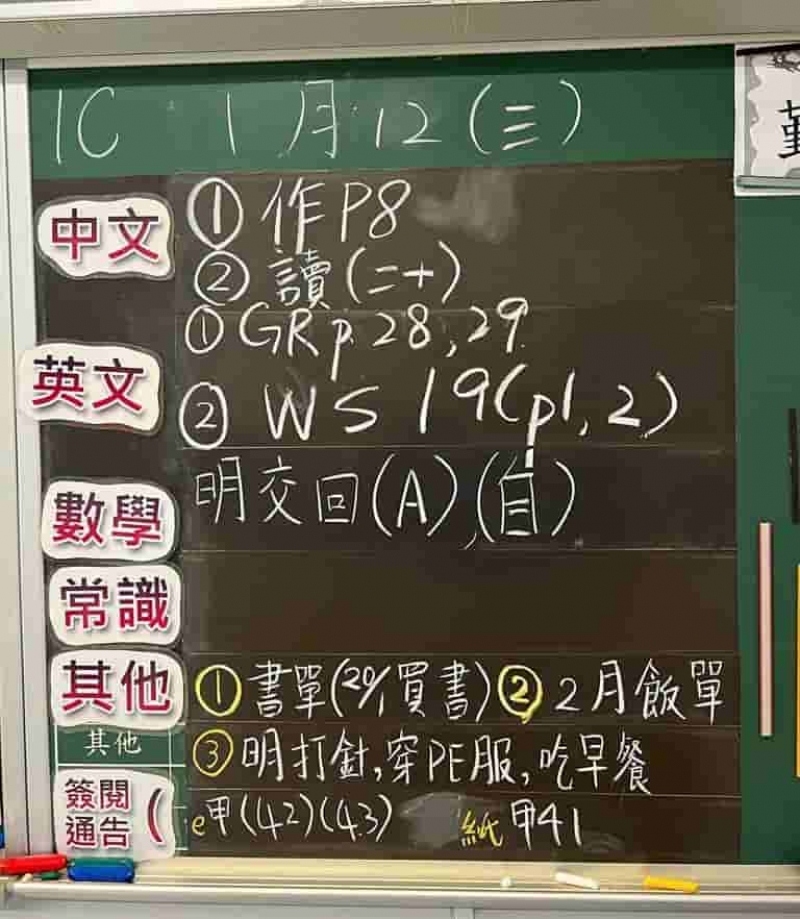 1C 1月12(三)
中文 ①作P8
②讀(二十)
英文 ①GR p.28,29
②WS 19(p1,2)
數學 明交回(A),(自)
常識
其他 ①書單(20/1買書)②2月飯單
其他 ③明打針,穿PE服,吃早餐
簽閱通告( e甲(42)(43) 紙甲41